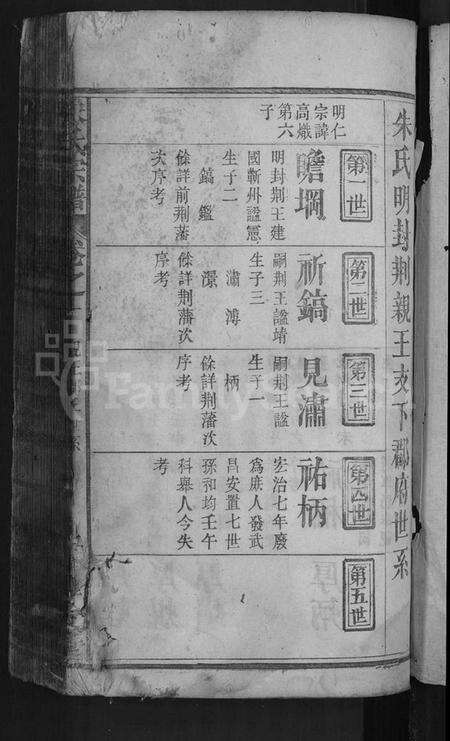 朱氏明封荆親王支下郡府世系
第一世
明仁
宗諱
高熾
第六
子
瞻堈
明封荆王建
國蘄州諡憲
生子二
鎬 鑑
餘詳前荆藩
次序考
第二世
祈鎬
嗣荆王諡靖
生子三
潚 溥
澋
餘詳荆藩次
序考
第三世
見潚
嗣荆王諡
生子一
柄
餘詳荆藩次
序考
第四世
祐柄
宏治七年廢
為庶人發武
昌安置七世
孫和均壬午
科舉人今失
考
第五世
氏宗譜